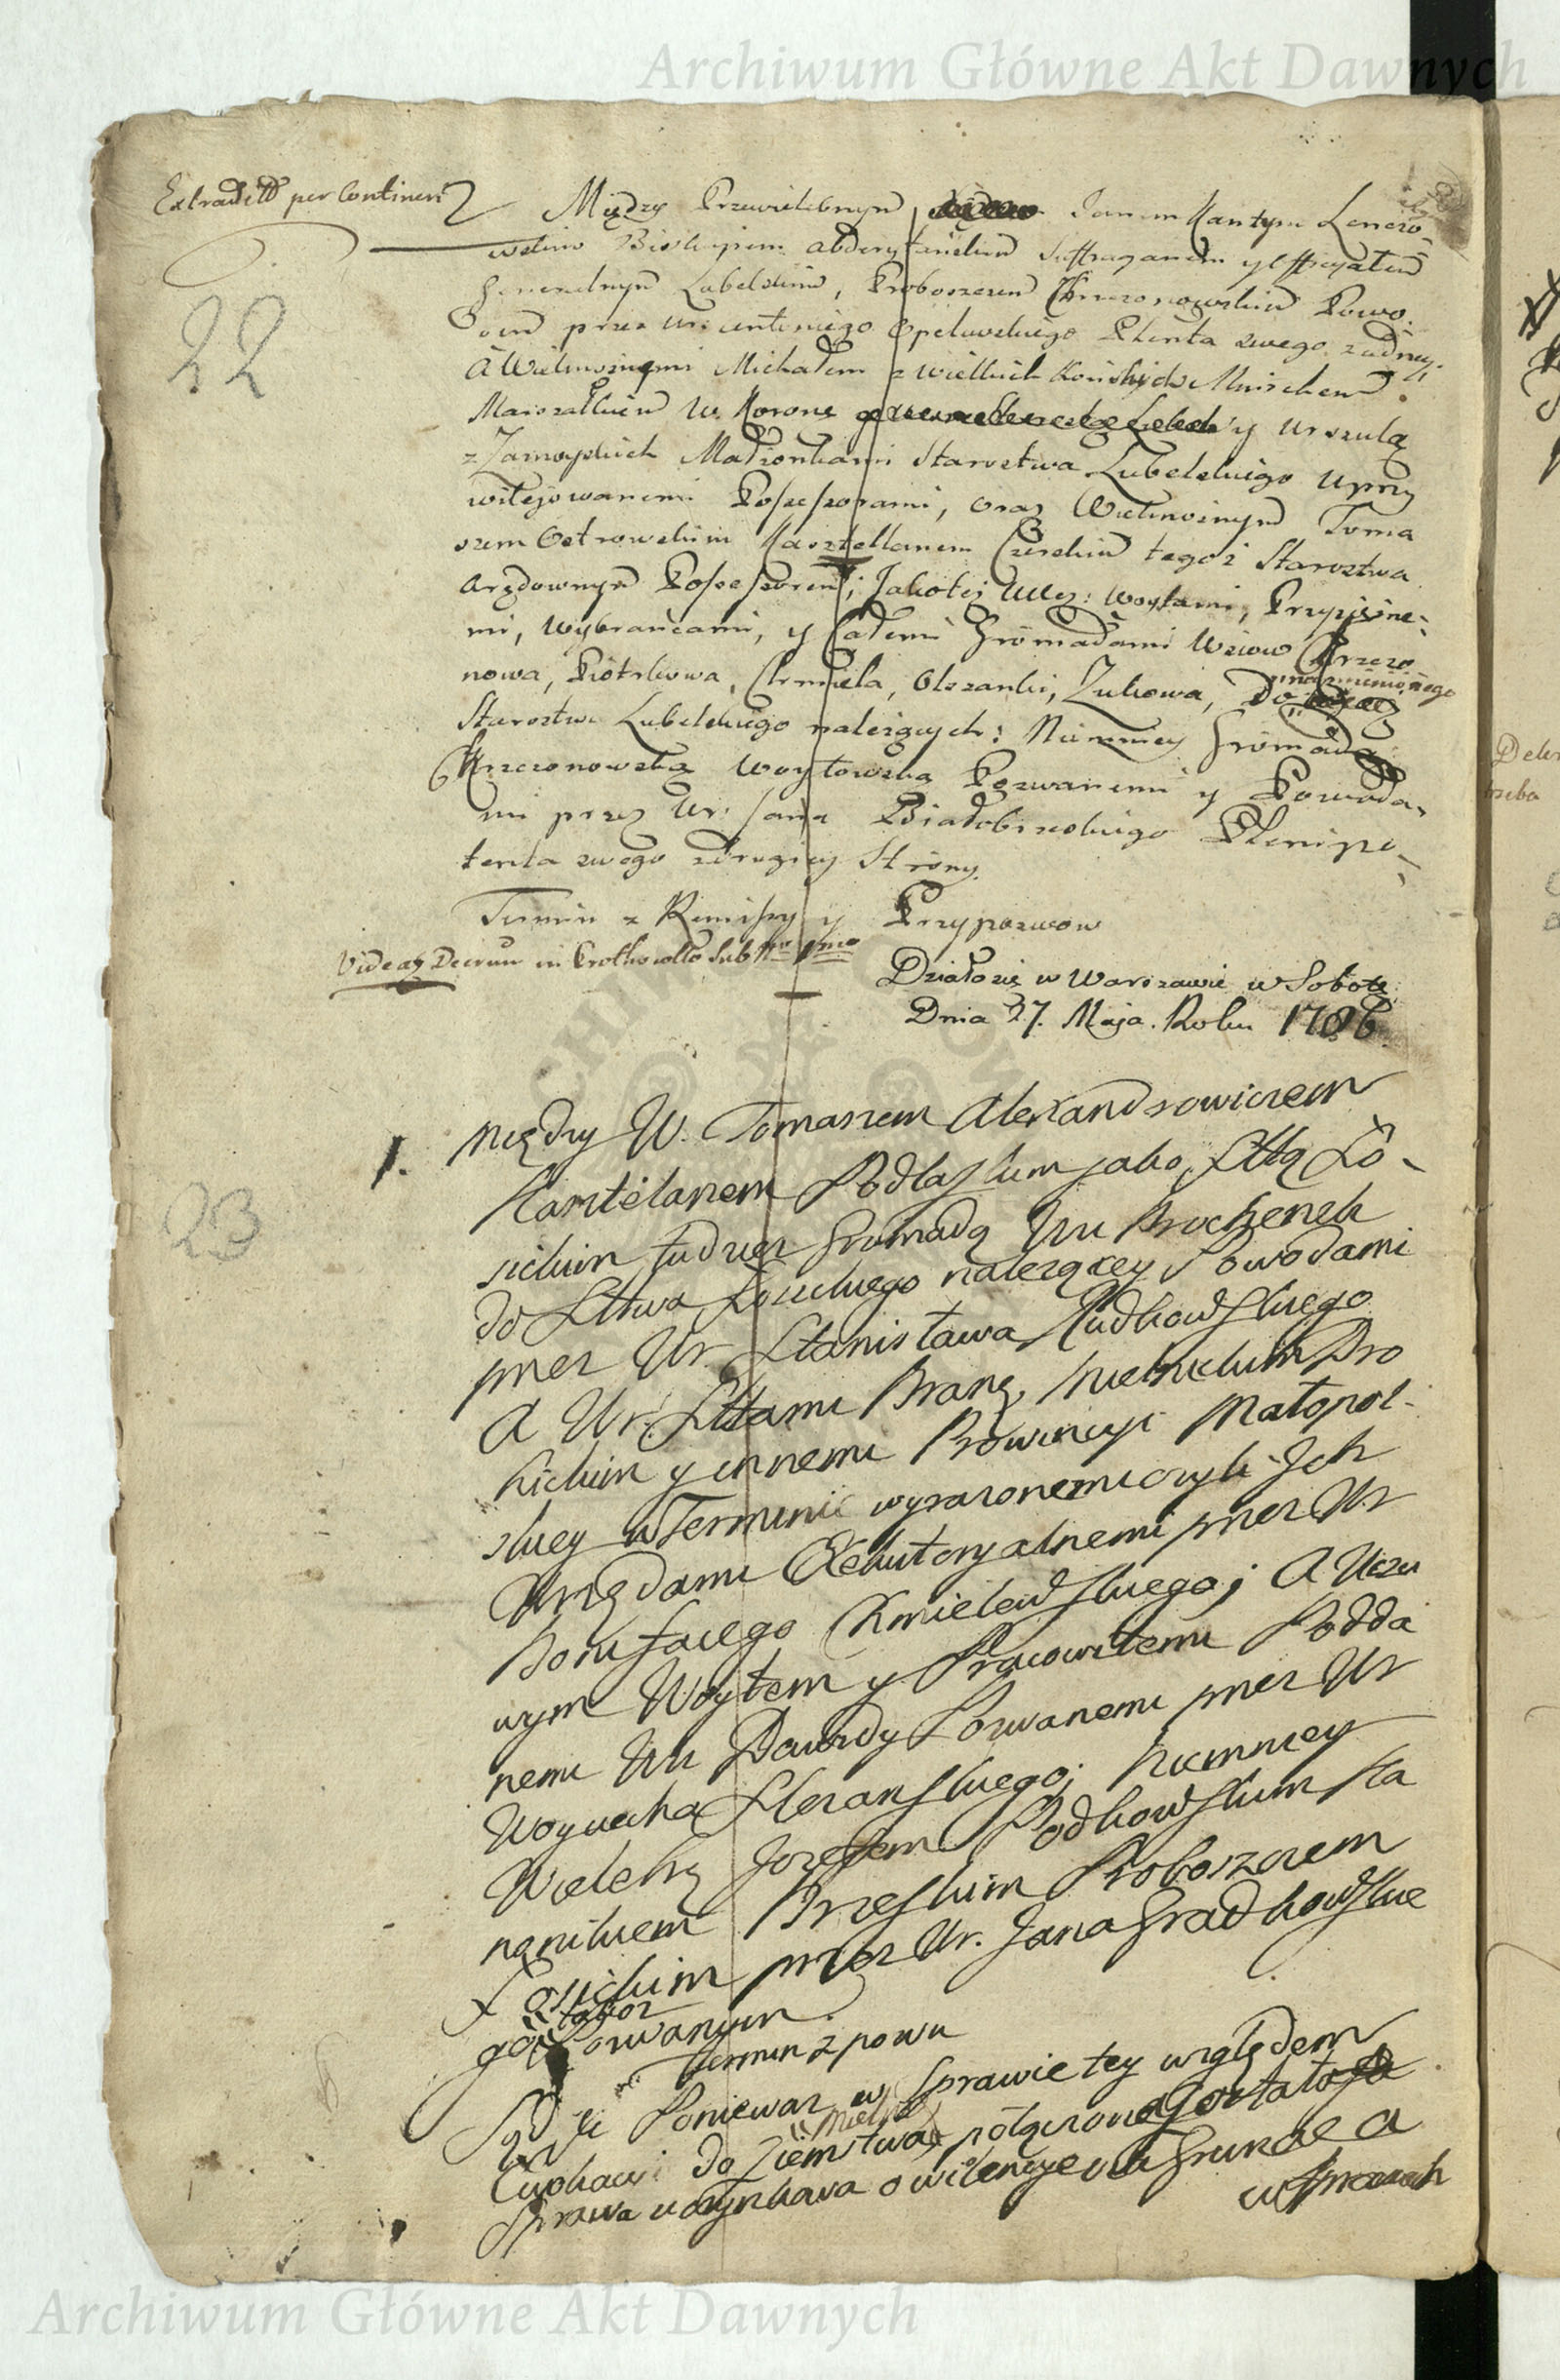 Archiwum Główne Akt Dawnych
Extradītt per Contineri
22
Między Przewielebnym Janem Kantym Lenczo-
wskim Biskupem abderytańskim Suffraganem y Officyałem
Generalnym Lubelskim, Proboszczem Krzczonowskim Powo-
dem przez Ur: Antoniego Opeluskiego Plenta swego z iedney
A Wielmożnymi Michałem z wielkich Kończyc Mniszchem
Marszałkiem W. Koronę y Urszulą
z Zamoyskich Małżonkami Starostwa Lubelskiego Uprzy
wilejowanemi Possessorami, oraz Wielmożnym Toma
szem Ostrowskim Kasztellanem Czerskim tegoż Starostwa
Arędownym Possessorem; Jakoteż Ucz: Woytami, Przysiężne-
mi, Wybrańcami, y Całemi Gromadami Wsiow Krzczo
nowa, Piotrkowa, Chmiela, Olszanki, Żukowa, Do namienionego
Starostwa Lubelskiego należących: Niemniey Gromadą
Krzczonowską Woytowską Pozwanemi y Powoda-
mi przez Ur: Jana Białobrzeskiego Plenipo-
tenta swego z drugiey Strony.
Termin z Remissy y Przypozwow
Videas Decrum in Crotkowllo Sub Nro 1mo
Działo się w Warszawie w Sobotę
Dnia 27. Maja. Roku 1786.
23
1. Między W. Tomaszem Alexandrowiczem
Kasztelanem Podlaskim jako Sttą Ło-
sickim tudzież Gromadą Wsi
do Sttwa Łosickiego należącey Powodami
przez Ur. Stanisława Rudkowskiego
A Ur. Sttami Brans. Mielnickim Dro
hickim y innemi Prowincyi Małopol-
skiey w Terminie wyrażonemi czyli Jch
Urzędami Exekutoryalnemi przez Ur
Bonifacego Kmielewskiego; A Ucz
wym Woytem y Pracowitemi Podda
nemi Wsi Dawidy Pozwanemi przez Ur
Woyciecha Sleżanskiego; Niemniey
Wieleb. Jozefem Rodkowskim Ka
nonikiem Brzeskim Proboszczem
Łosickim przez Ur. Jana Gradkowskie
go także Pozwanym.
Termin z pozwu
Sąd Ponieważ w Sprawie tey względem
Do Ziemstwa Mielnic: połączona została
Sprawa uczynkowa o wiolencye na Gruncie a
w Sprawach
Archiwum Główne Akt Dawnych